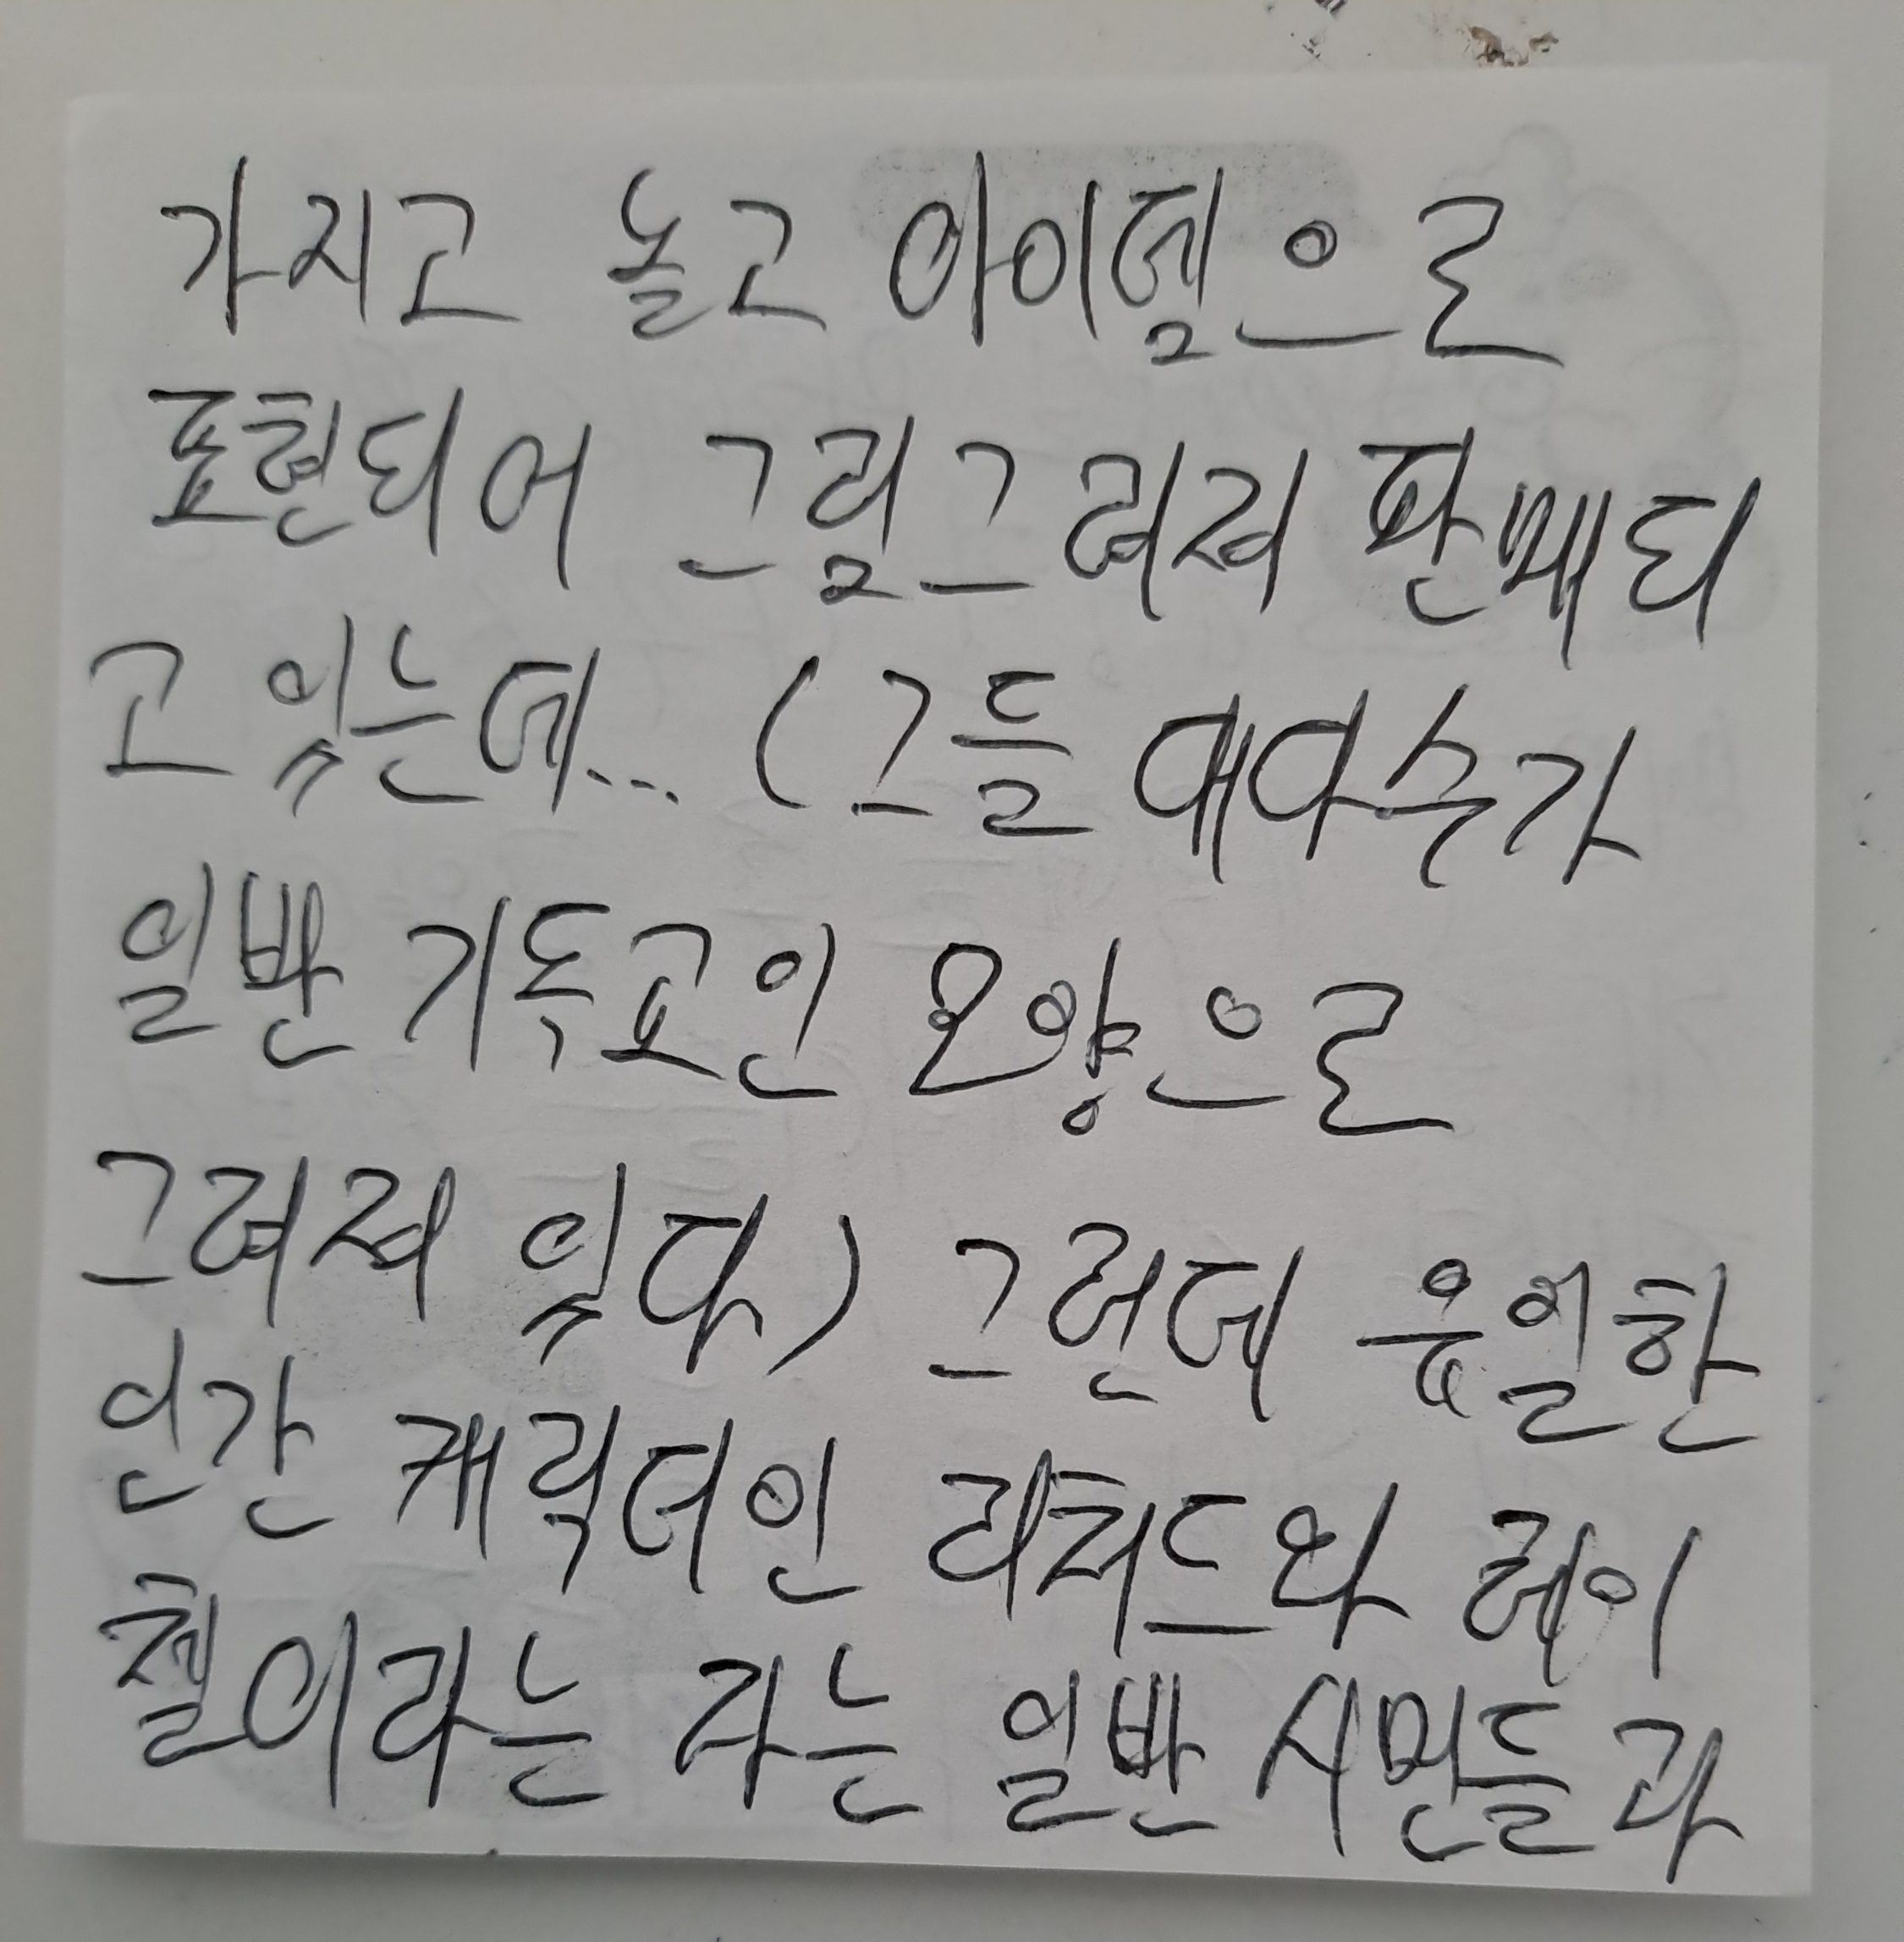 가지고 놀고 아이템으로
표현되어 그림그려져 판매되
고 있는데... (그들 대다수가
일반 기독교인 모양으로
그려져 있다) 그런데 유일한
인간 캐릭터인 리처드와 레이
첼이라는 자는 일반 시민들과